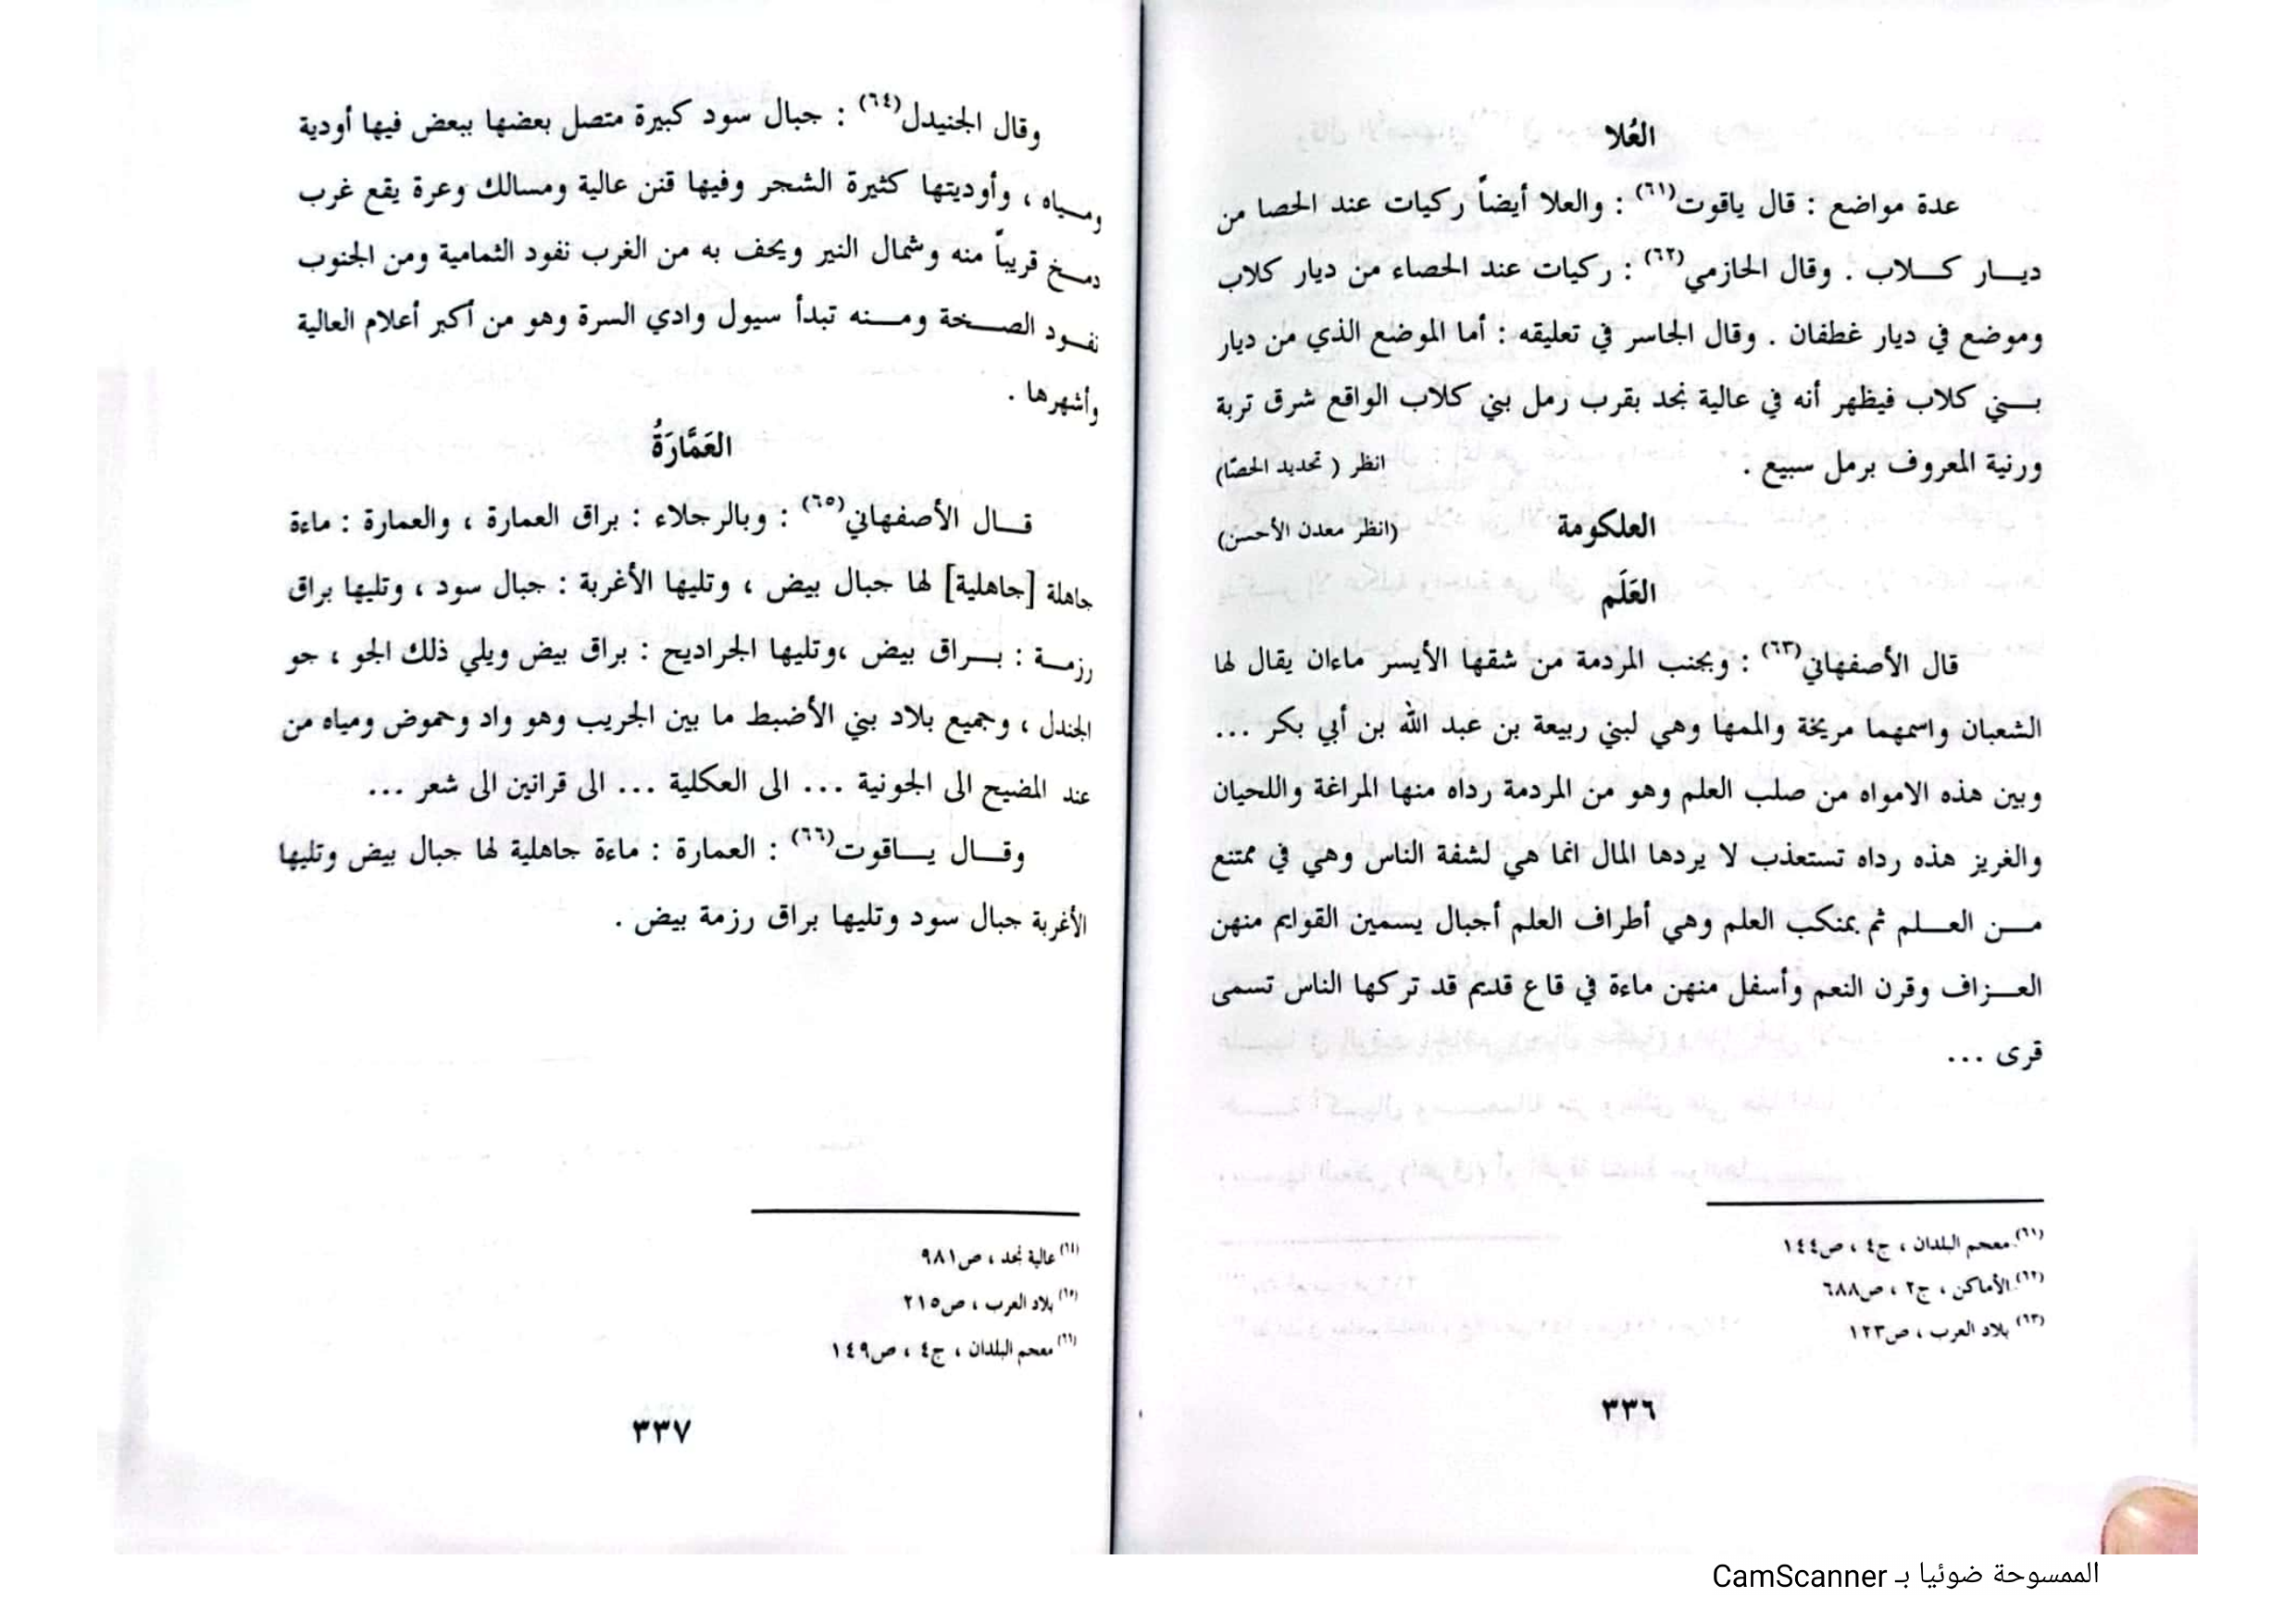 العُلا
عدة مواضع : قال ياقوت(٦١) : والعلا أيضاً ركيات عند الحصا من
ديـــار كـــلاب . وقال الحازمي(٦٢) : ركيات عند الحصاء من ديار كلاب
وموضع في ديار غطفان . وقال الجاسر في تعليقه : أما الموضع الذي من ديار
بـــني كلاب فيظهر أنه في عالية نجد بقرب رمل بني كلاب الواقع شرق تربة
ورنية المعروف برمل سبيع . انظر ( تحديد الحصّا)
العلكومة (انظر معدن الأحسن)
العَلَم
قال الأصفهاني(٦٣) : وبجنب المردمة من شقها الأيسر ماءان يقال لها
الشعبان واسمهما مريخة والممها وهي لبني ربيعة بن عبد الله بن أبي بكر ...
وبين هذه الامواه من صلب العلم وهو من المردمة رداه منها المراغة واللحيان
والغريز هذه رداه تستعذب لا يردها المال انما هي لشفة الناس وهي في ممتنع
مـــن العـــلم ثم بمنكب العلم وهي أطراف العلم أجبال يسمين القوايم منهن
العـــزاف وقرن النعم وأسفل منهن ماءة في قاع قديم قد تركها الناس تسمى
قرى ...
(٦١) معجم البلدان ، ج٤ ، ص١٤٤
(٦٢) الأماكن ، ج٢ ، ص٦٨٨
(٦٣) بلاد العرب ، ص١٢٣
٣٣٦
وقال الجنيدل(٦٤) : جبال سود كبيرة متصل بعضها ببعض فيها أودية
ومـــياه ، وأوديتها كثيرة الشجر وفيها قنن عالية ومسالك وعرة يقع غرب
دمـــخ قريباً منه وشمال النير ويحف به من الغرب نفود الثمامية ومن الجنوب
نفـــود الصـــخة ومـــنه تبدأ سيول وادي السرة وهو من أكبر أعلام العالية
وأشهرها .
العَمَّارَةُ
قـــال الأصفهاني(٦٥) : وبالرجلاء : براق العمارة ، والعمارة : ماءة
جاهلة [جاهلية] لها جبال بيض ، وتليها الأغربة : جبال سود ، وتليها براق
رزمـــة : بـــراق بيض ،وتليها الجراديح : براق بيض ويلي ذلك الجو ، جو
الجندل ، وجميع بلاد بني الأضبط ما بين الجريب وهو واد وحموض ومياه من
عند المضيح الى الجونية ... الى العكلية ... الى قرانين الى شعر ...
وقـــال يـــاقوت(٦٦) : العمارة : ماءة جاهلية لها جبال بيض وتليها
الأغربة جبال سود وتليها براق رزمة بيض .
(٦٤) عالية نجد ، ص٩٨١
(٦٥) بلاد العرب ، ص٢١٥
(٦٦) معجم البلدان ، ج٤ ، ص١٤٩
٣٣٧
الممسوحة ضوئيا بـ CamScanner